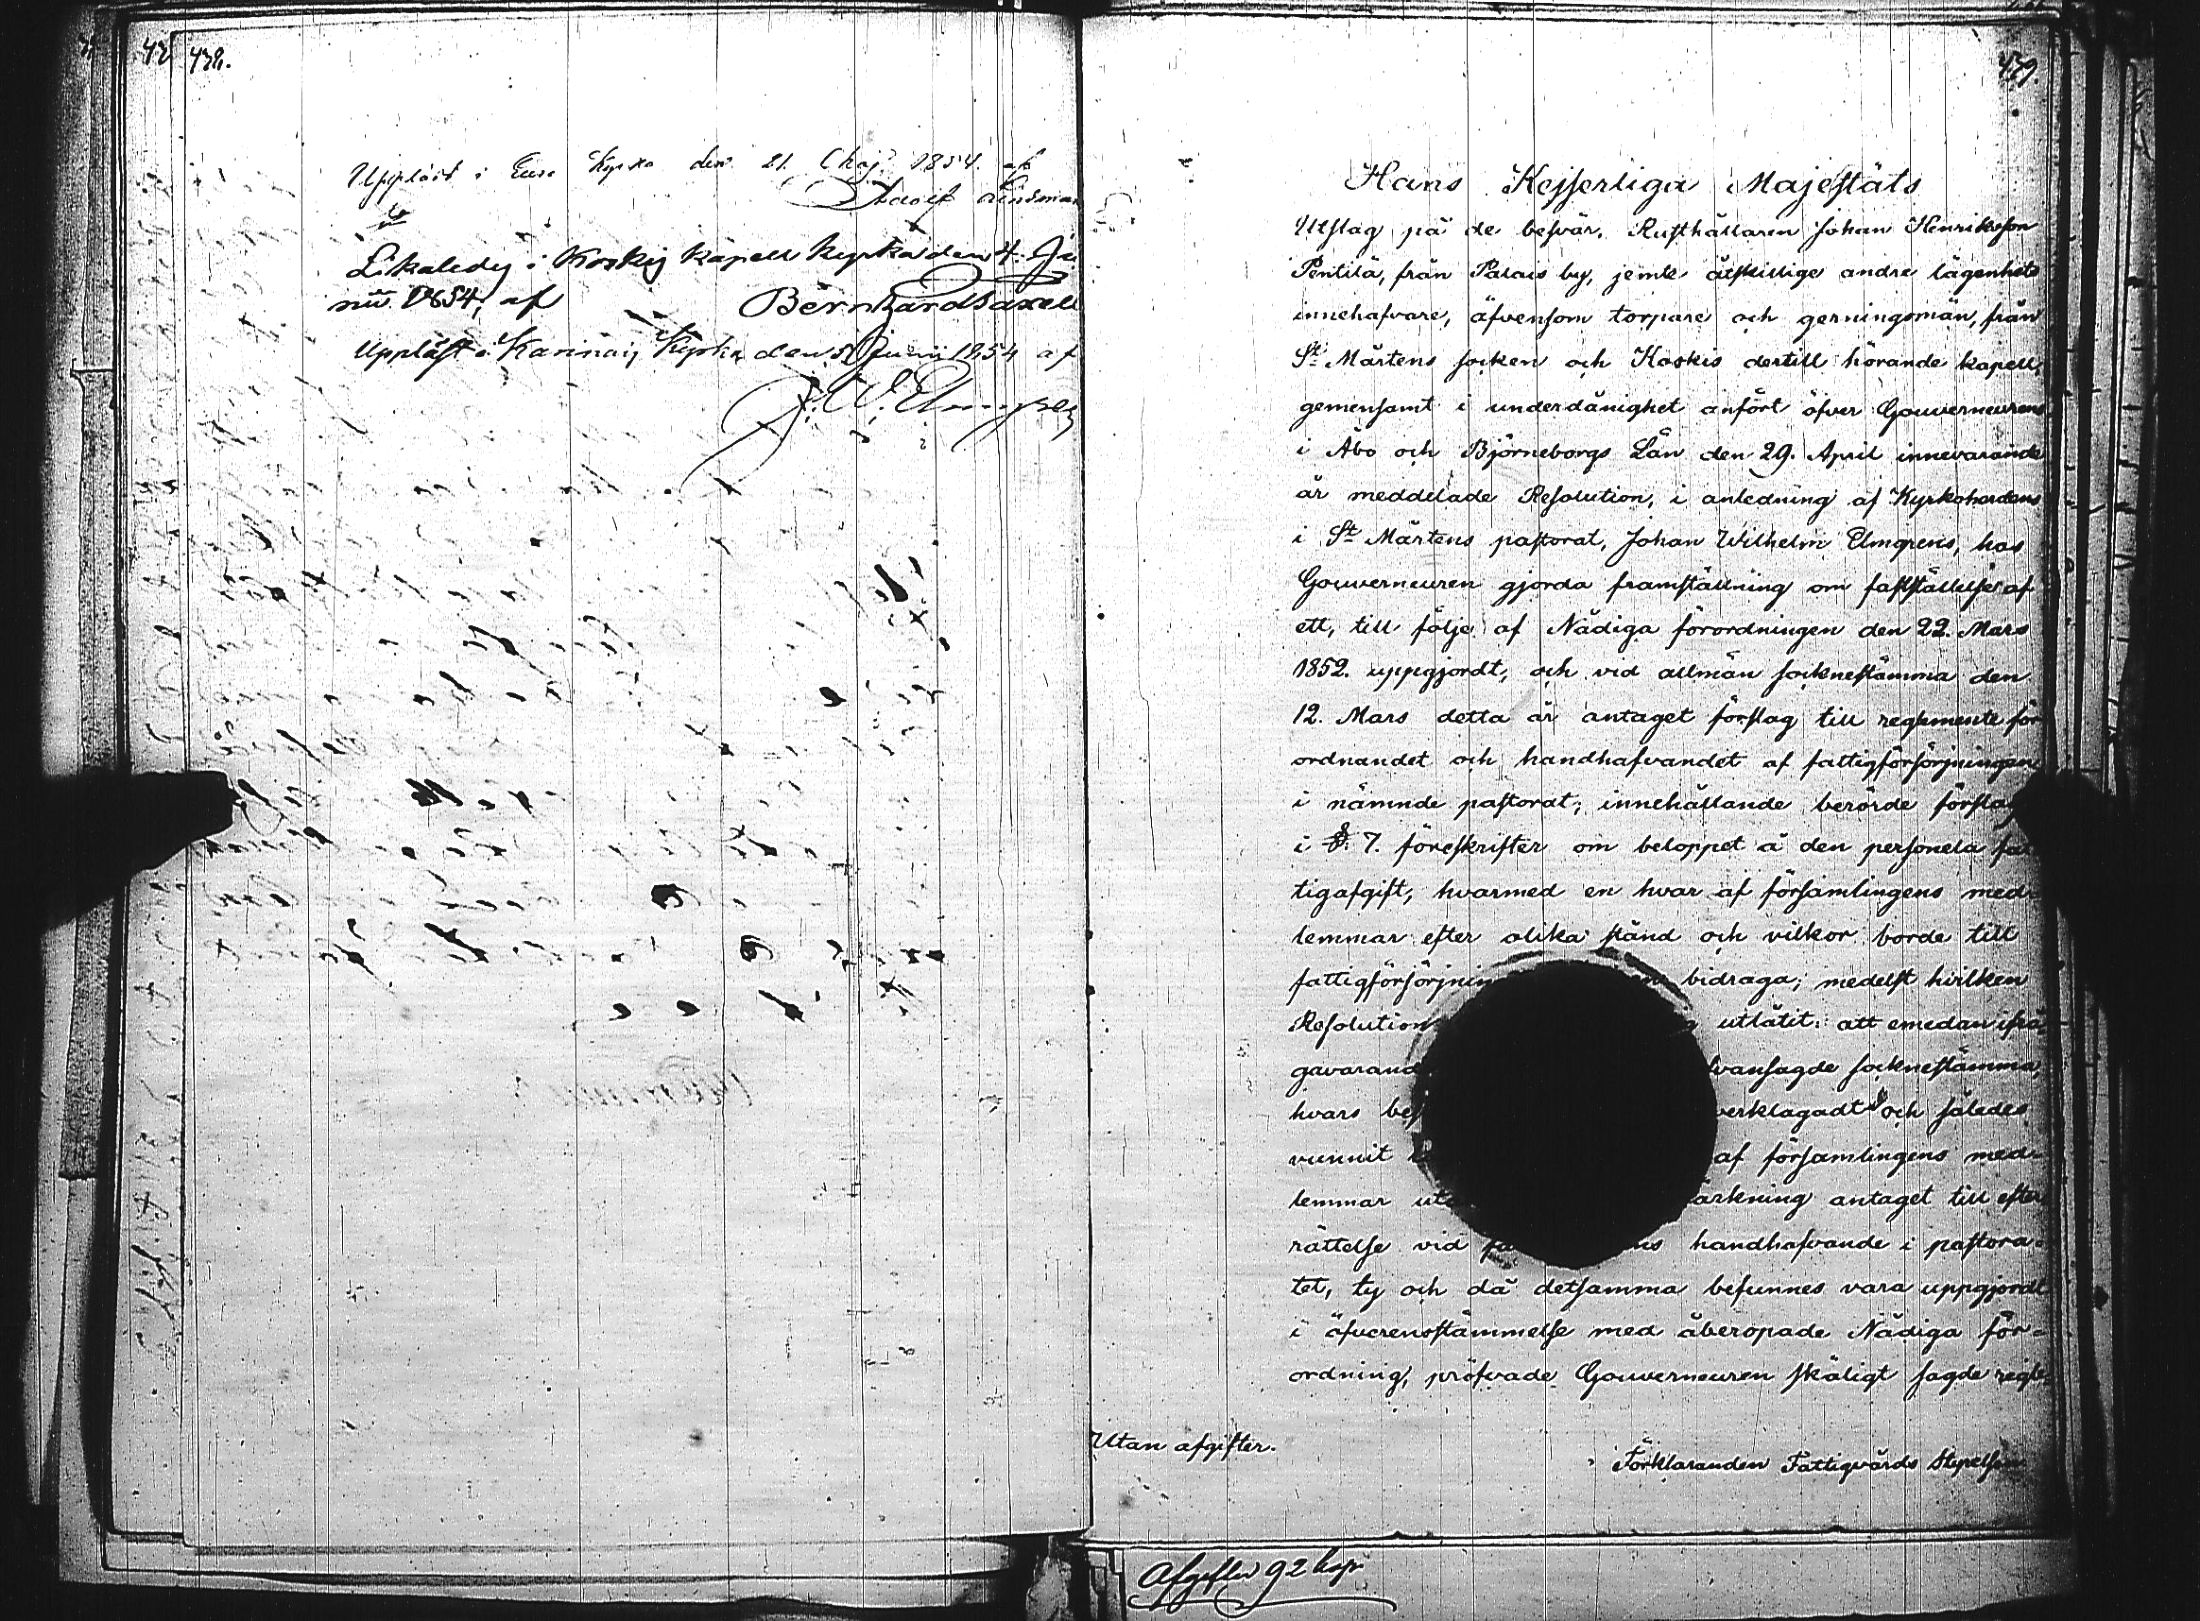 438.
Uppläst i Eura Kyrka den 21. Maj 1854. af
Adolf Lindman
Likaledes i Koskis kapell kyrka den 4. Ju
nii 1854, af Bernhard Saxell
Uppläst i Karinais Kyrka den 5 Junii 1854 af
J. W. Elmgren
439.
Hans Kejserliga Majestäts
Utslag på de besvär, Rusthållaren Johan Henriksson
Pentilä, från Palais by, jemte åtskillige andre lägenhets
innehafvare, äfvensom torpare och gerningsmän, från
S:t Mårtens socken och Koskis dertill hörande kapell,
gemensamt i underdånighet anfört öfver Gouverneurens
i Åbo och Björneborgs Län den 29. April innevarande
år meddelade Resolution, i anledning af Kyrkoherdens
i S:t Mårtens pastorat, Johan Wilhelm Elmgrens, hos
Gouverneuren gjorda framställning om fastställelse af
ett, till följe af Nådiga förordningen den 22. Mars
1852. uppgjordt, och vid allmän socknestämma den
12. Mars detta år antaget förslag till reglemente för
ordnandet och handhafvandet af fattigförsörjningen
i nämnde pastorat; innehållande berörde förslag
i §. 7. föreskrifter om beloppet å den personela fat
tigafgift, hvarmed en hvar af församlingens med-
lemmar efter olika stånd och vilkor borde till
fattigförsörjnin bidraga; medelst hvilken
Resolution utlåtit: att emedan ifrå
gavarand ofvansagde socknestämma,
hvars bes verklagadt och således
vunnit af församlingens med-
lemmar uta ärkning antaget till efter
rättelse vid handhafvande i pastora-
tet, ty och då detsamma befunnes vara uppgjordt
i öfverensstämmelse med åberopade Nådiga för-
ordning, pröfvade Gouverneuren skäligt sagde regle-
Utan afgifter.
Förklaranden Fattigvårds Styrelsen
Afgifter 92 kop.